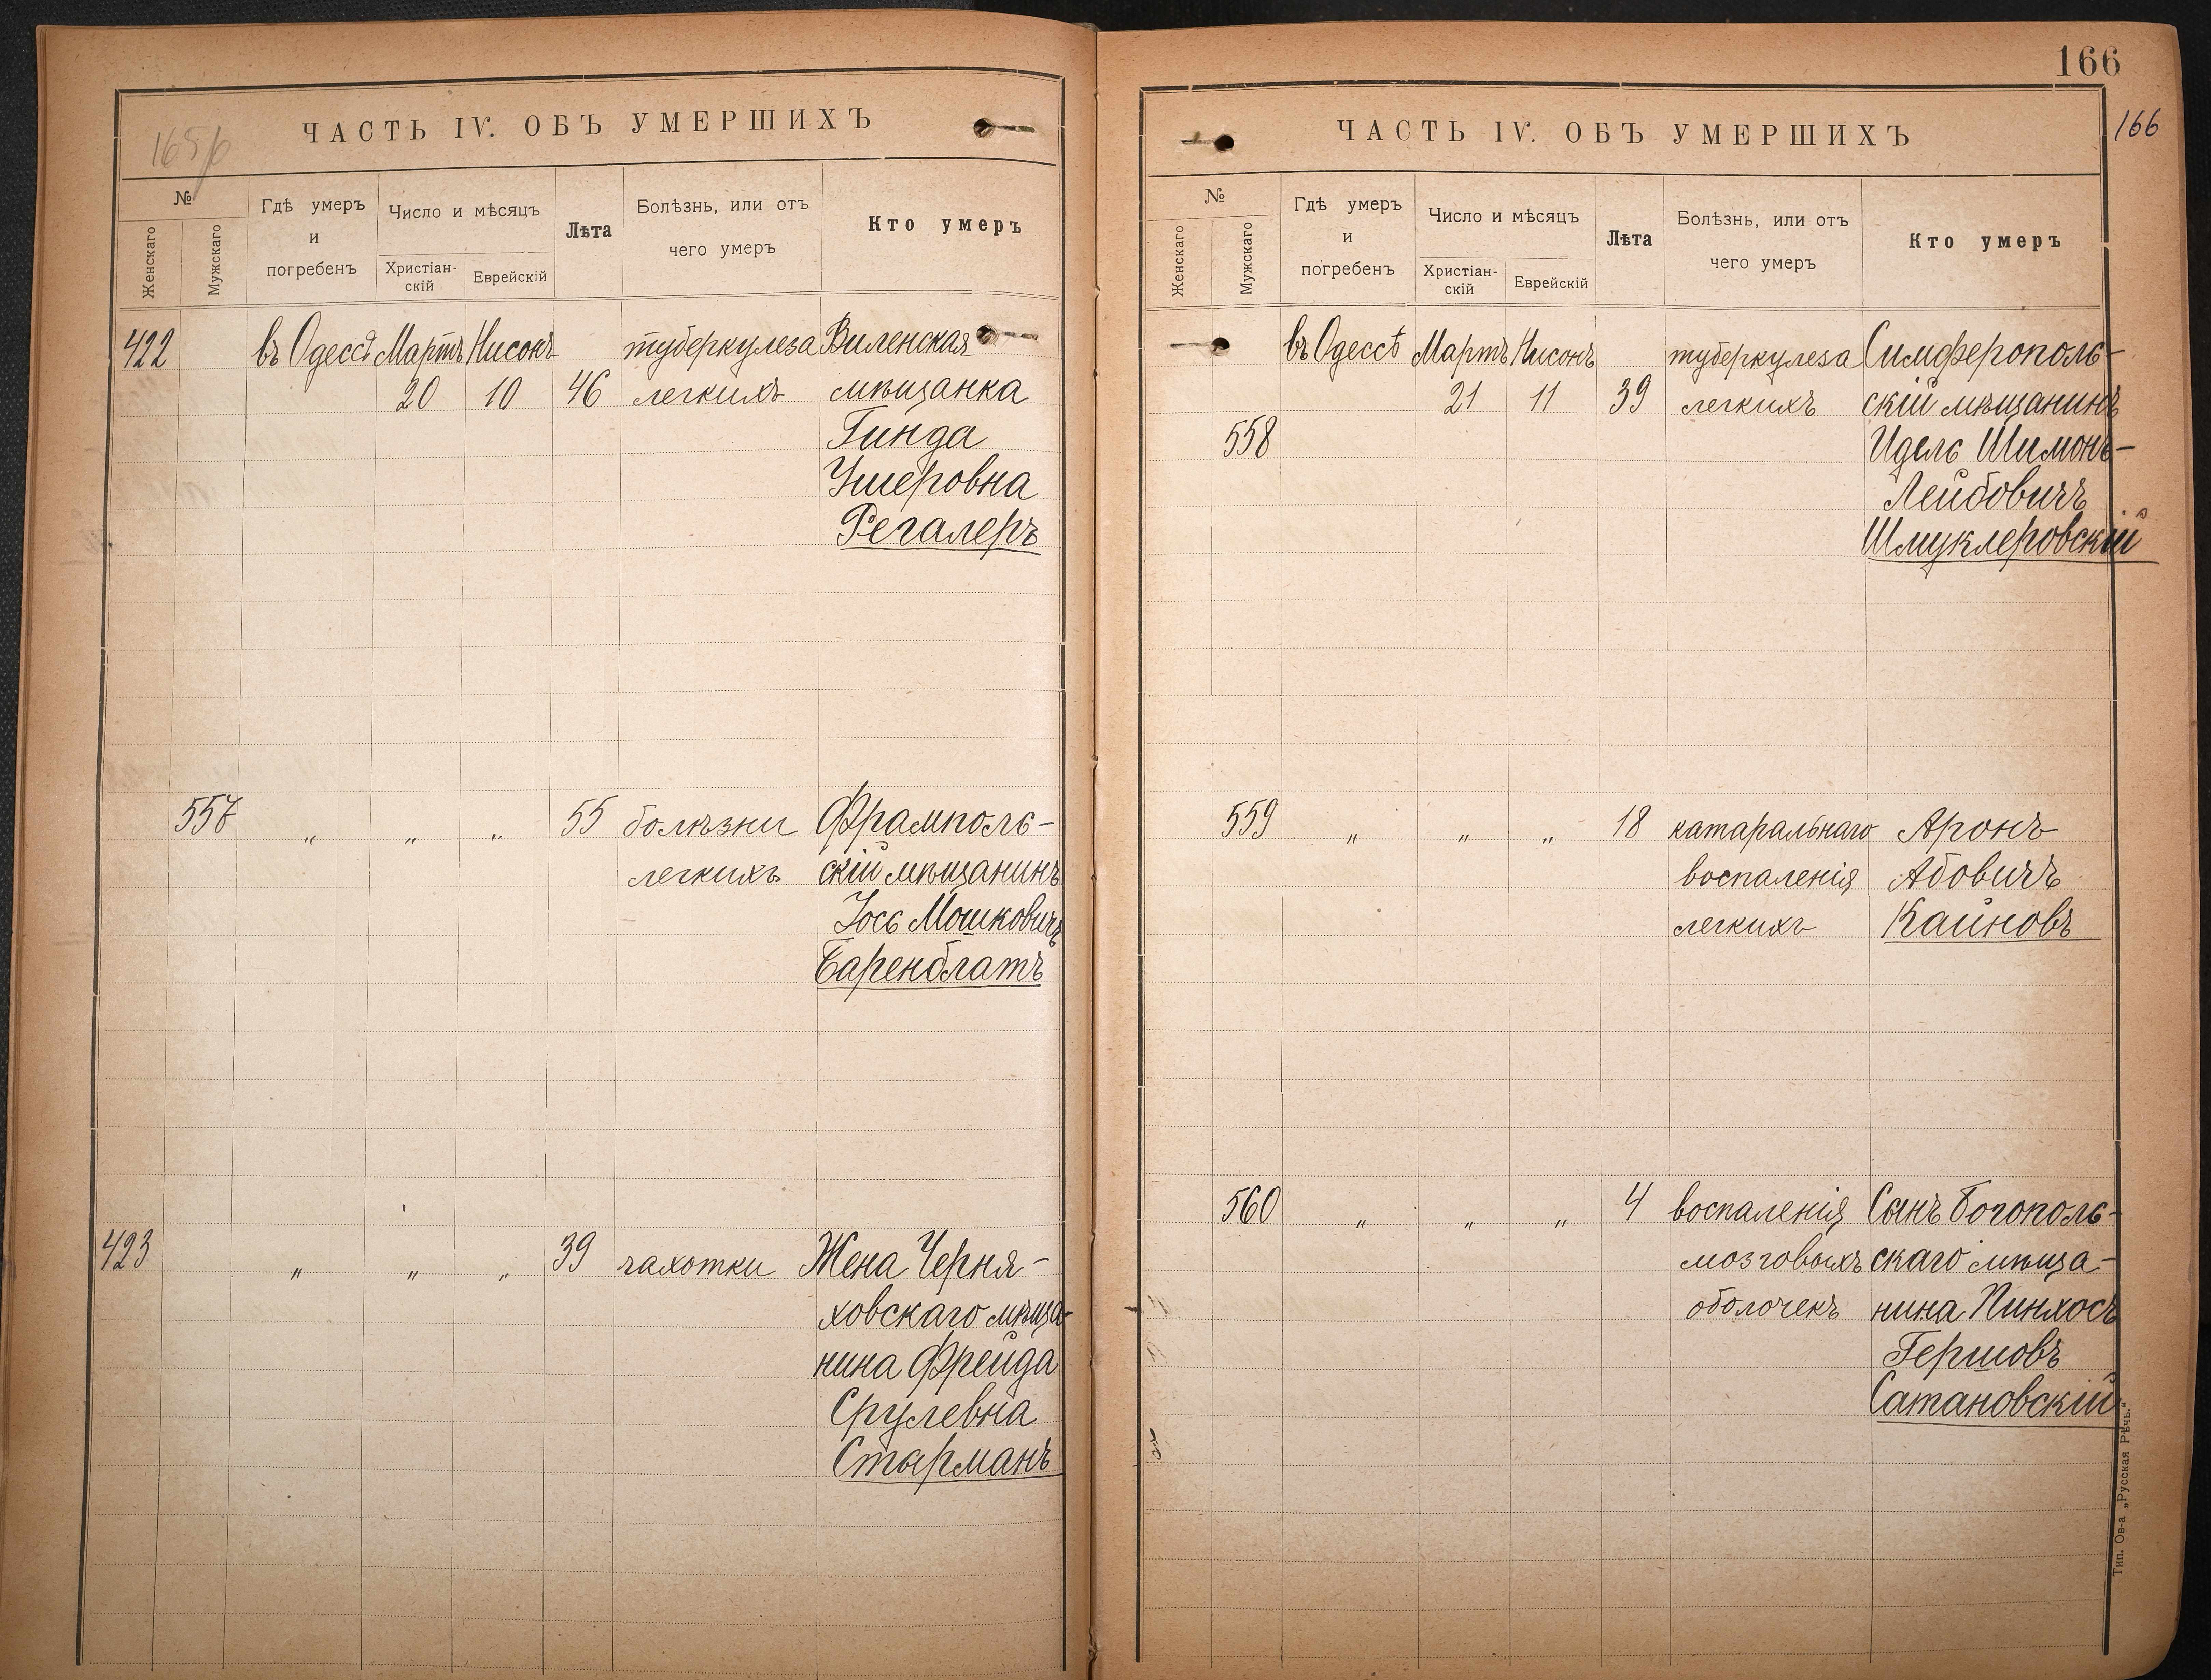 ЧАСТЬ IV. ОБЪ УМЕРШИХЪ
№
Женскаго
Мужскаго
Гдѣ умеръ
и
погребенъ
Число и мѣсяцъ
Христіан-
скій
Еврейскій
Лѣта
Болѣзнь, или отъ
чего умеръ
Кто умеръ
422 въ Одессѣ Мартъ Нисонъ туберкулеза Виленская
20 10 46 легкихъ мѣщанка
Гинда
Ушеровна
Регалеръ
557 „ „ „ 55 болѣзни Фрамполь-
легкихъ скій мѣщанинъ
Іось Мошковичъ
Баренблатъ
423 „ „ „ 39 чахотки Жена Черня-
ховскаго мѣща-
нина Фрейда
Срулевна
Стырманъ
166
166
ЧАСТЬ IV. ОБЪ УМЕРШИХЪ
№
Женскаго
Мужскаго
Гдѣ умеръ
и
погребенъ
Число и мѣсяцъ
Христіан-
скій
Еврейскій
Лѣта
Болѣзнь, или отъ
чего умеръ
Кто умеръ
въ Одессѣ Мартъ Нисонъ туберкулеза Симферополь-
21 11 39 легкихъ скій мѣщанинъ
558 Идель Шимонъ-
Лейбовичъ
Шмуклеровскій
559 „ „ „ 18 катаральнаго Аронъ
воспаленія Абовичъ
легкихъ Кайновъ
560 „ „ „ 4 воспаленія Сынъ Богополь-
мозговыхъ скаго мѣща-
оболочекъ нина Пинхосъ
Гершовъ
Сатановскій
Тип. Ов-а „Русская Рѣчь.“